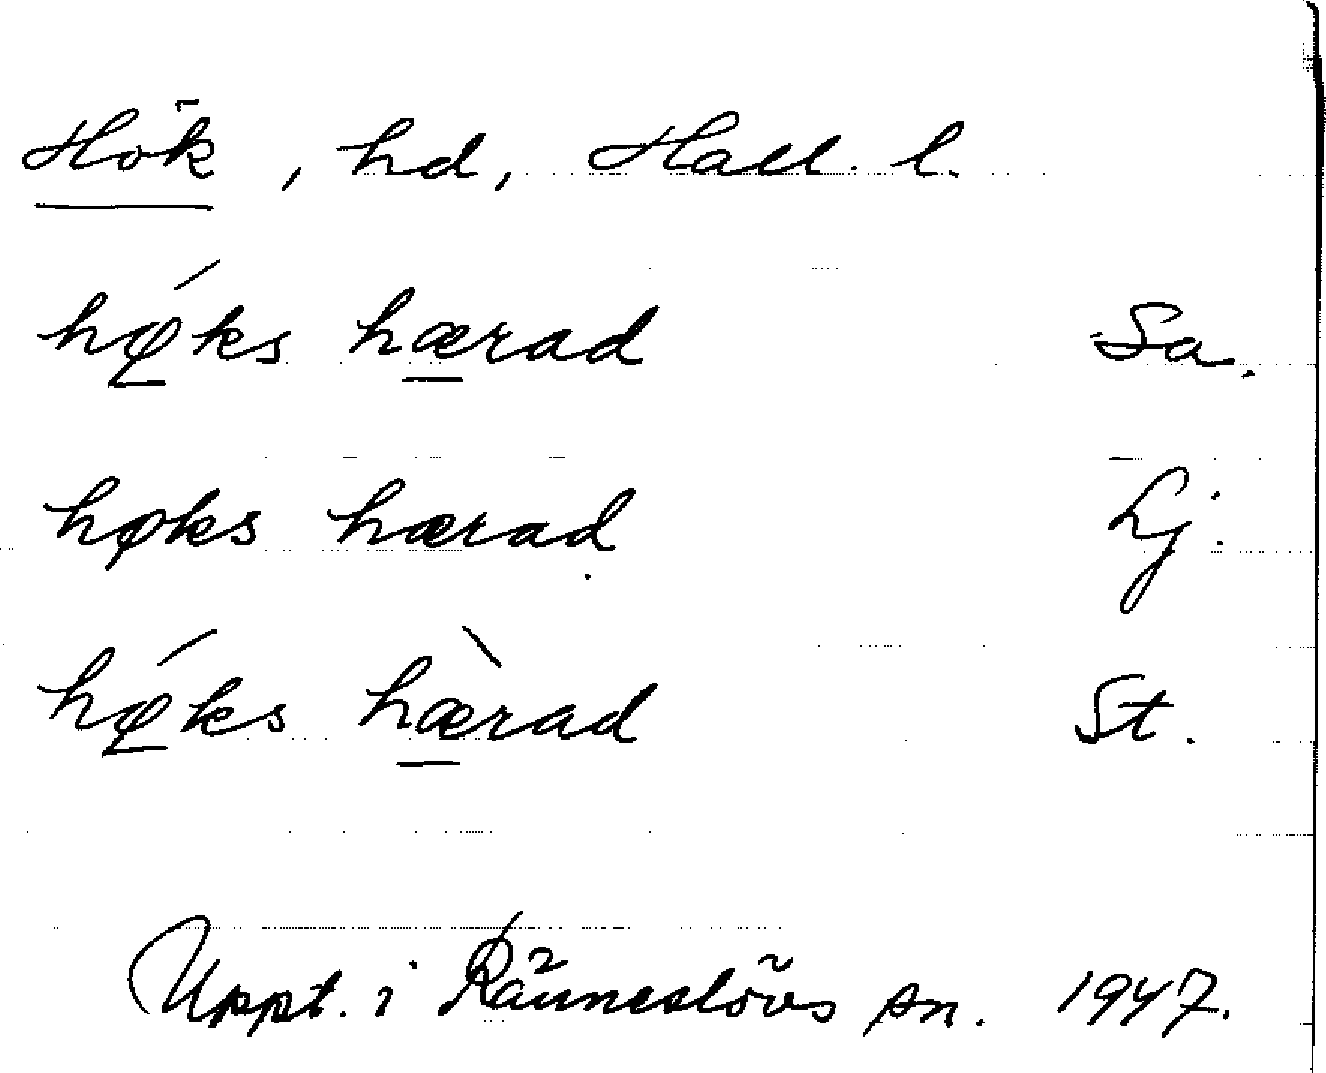 Hök, hd, Hall. l.
hǿ̱ks hæ̱rad Sa.
høks hæraḍ Lj.
hǿ̱ks hæ̱̀rad St.
Uppt. i Ränneslövs sn. 1947.